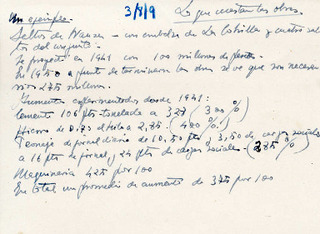 3/7/9
Un ejemplo. Lo que cuestan las obras.
Saltos de Nansa - un embalse de La Cohilla y cuatro sal
tos del conjunto.
Se proyectó en 1941 con 100 millones de pesetas.
En 1950 a punto de terminarse las obras se ve que son necesa
rios 275 millones.
Aumentos experimentados desde 1941:
Cemento 106 pts-tonelada a 327 (300%)
Hierro de 0,73 hasta a 2,95. (400%)
jornal diario de 10,50 pts, 3,50 de cargas sociales
a 16 pts de jornal, 24 pts de cargas sociales (285%)
Maquinaria 425 por 100
En total un promedio de aumento de 375 por 100